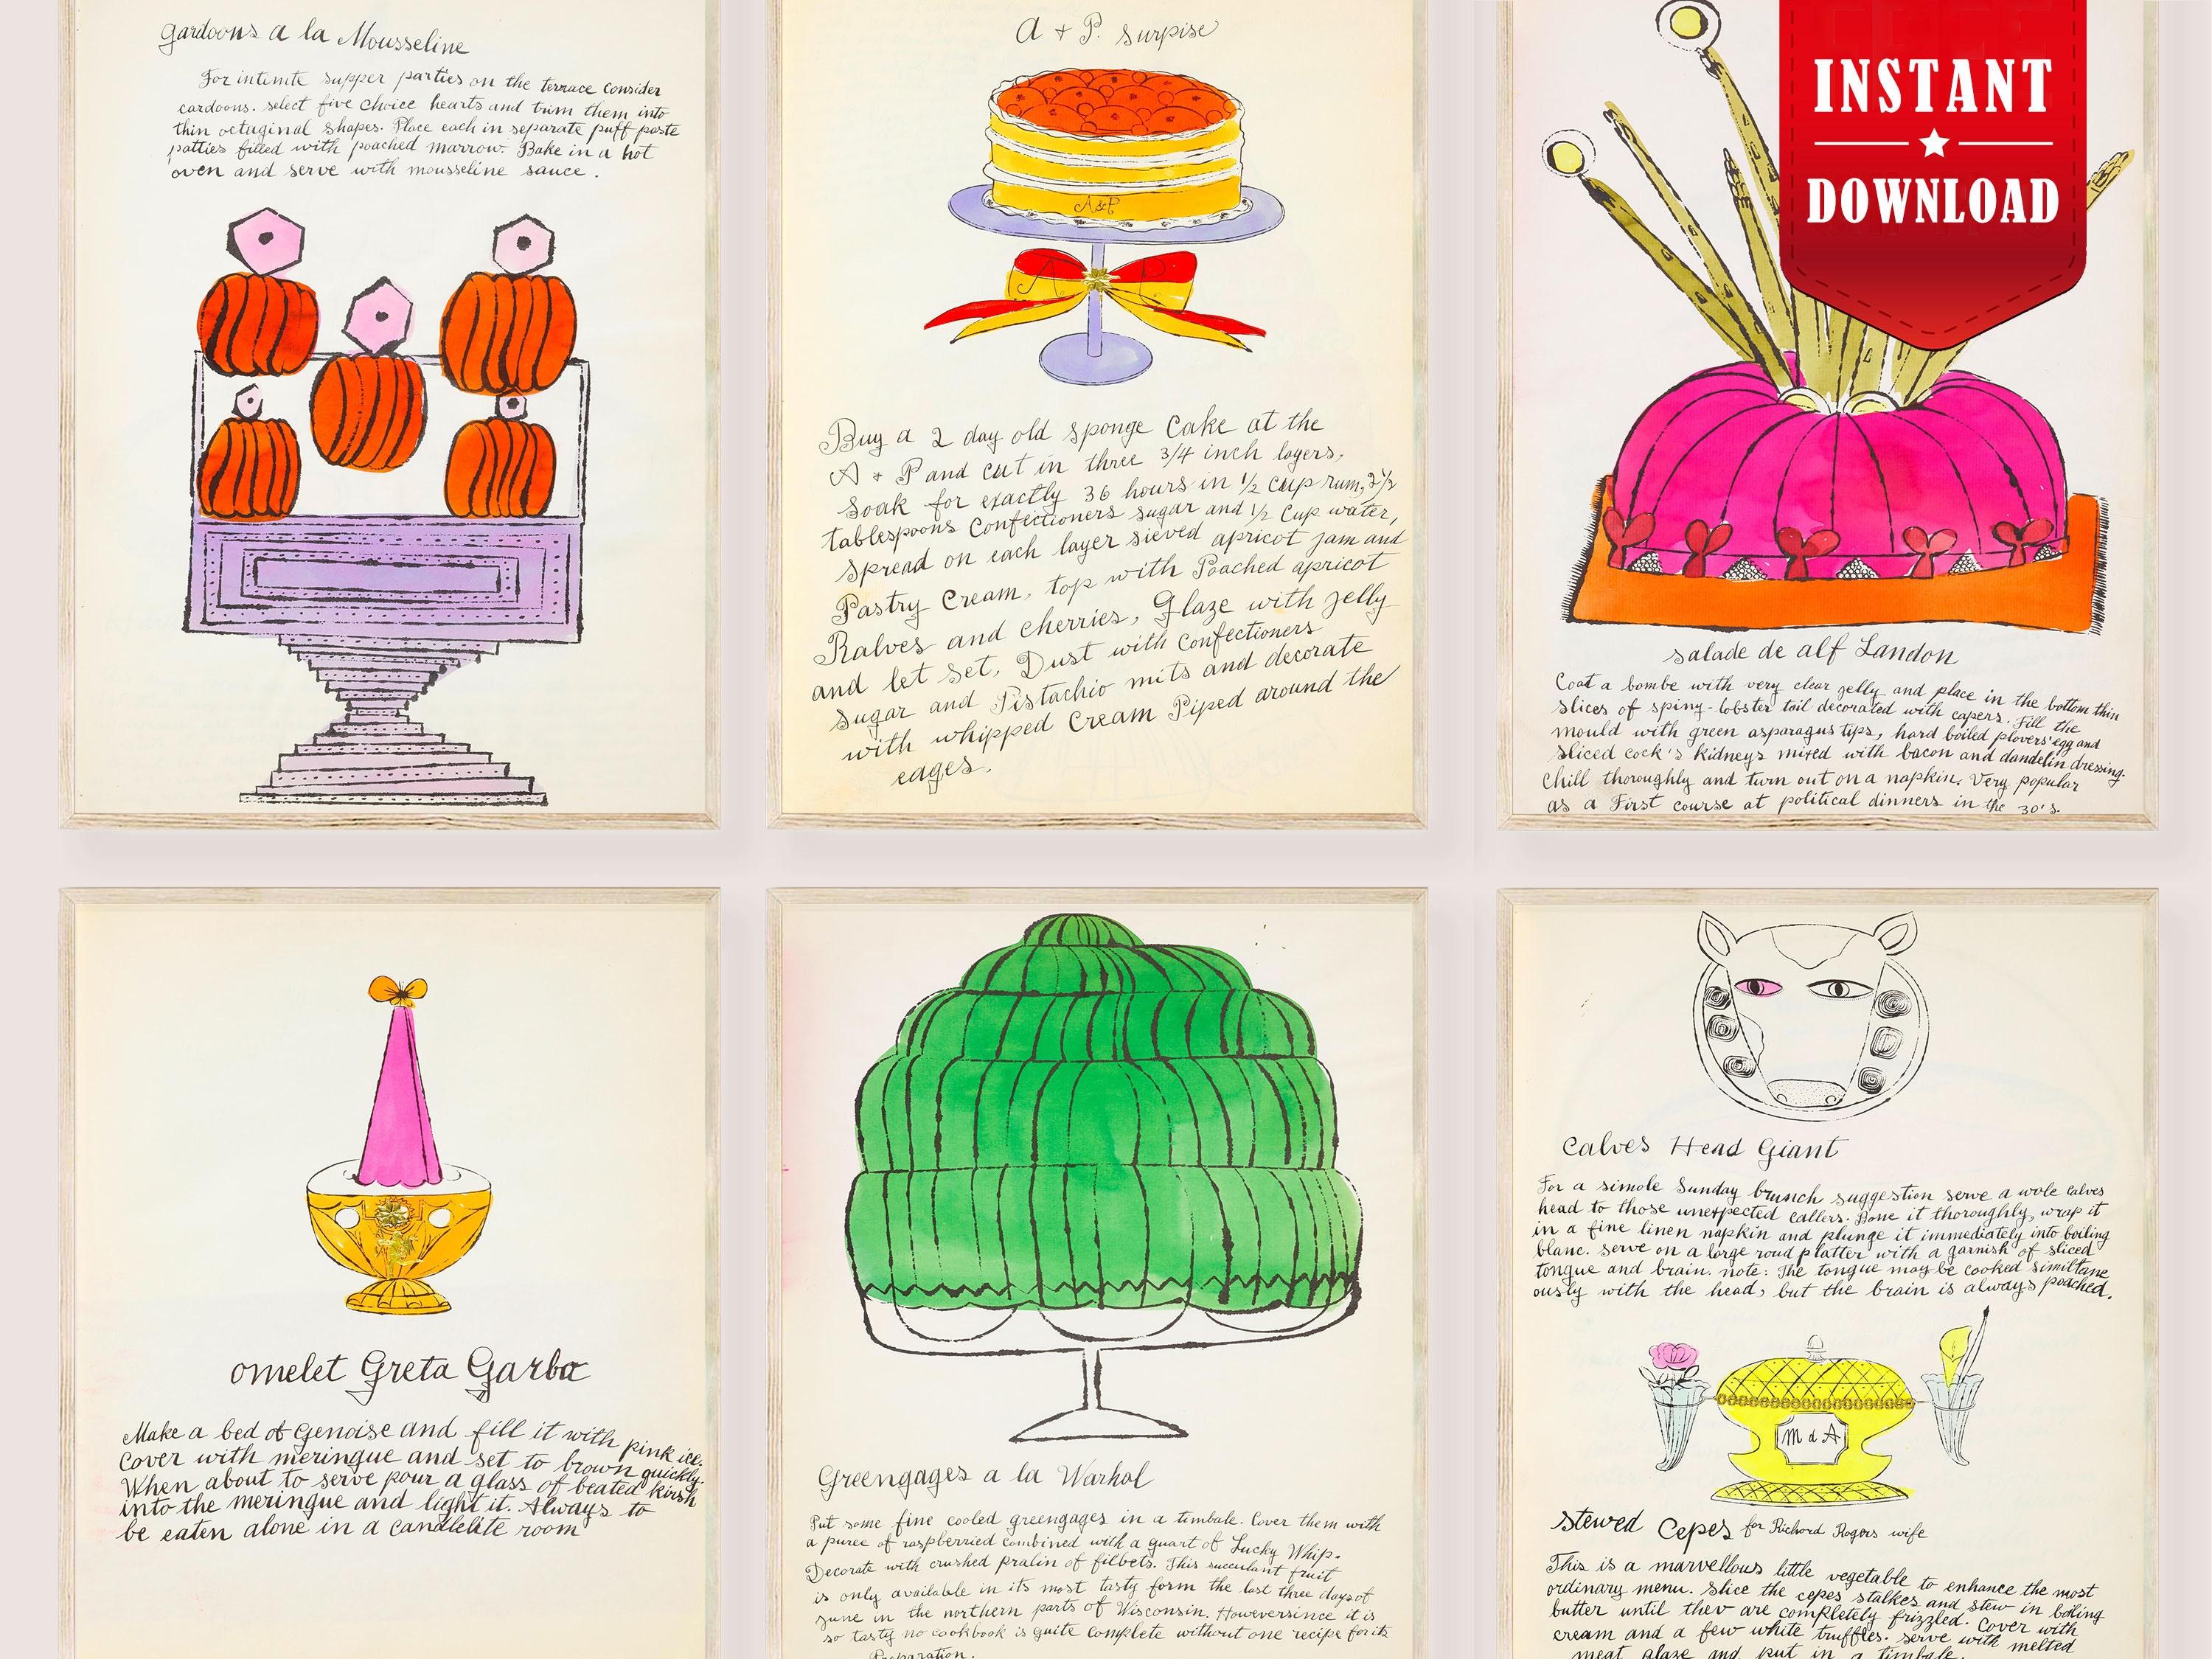 gardoons a la Mousseline
For intimte supper parties on the terrace consider
cardoons. select five choice hearts and trim them into
thin octuginal shapes. Place each in separate puff paste
patties filled with poached marrow. Bake in a hot
oven and serve with mousseline sauce.
A + P. surpise
A&P
A P
Buy a 2 day old sponge Cake at the
A + P and cut in three 3/4 inch layers,
Soak for exactly 36 hours in 1/2 cup rum, 2 1/2
tablespoons Confectioners sugar and 1/2 Cup water,
Spread on each layer sieved apricot jam and
Pastry Cream, top with Poached apricot
Ralves and cherries, Glaze with jelly
and let set, Dust with Confectioners
sugar and Pistachio mits and decorate
with whipped Cream Piped around the
eages.
INSTANT
DOWNLOAD
salade de alf Landon
Coat a bombe with very clear jelly and place in the bottom thin
slices of spiny-lobster tail decorated with capers. Fill the
mould with green asparagus tips, hard boiled plovers' egg and
sliced cock's kidneys mixed with bacon and dandelin dressing.
Chill thoroughly and turn out on a napkin. Very popular
as a First course at political dinners in the 30's.
omelet Greta Garbo
Make a bed of Genoise and fill it with pink ice.
Cover with meringue and set to brown quickly.
When about to serve pour a glass of heated kirsh
into the meringue and light it. Always to
be eaten alone in a candlelite room
Greengages a la Warhol
Put some fine cooled greengages in a timbale. Cover them with
a puree of raspberried combined with a quart of Lucky Whip.
Decorate with crushed pralin of filbets. This succulant fruit
is only available in its most tasty form the last three days of
june in the northern parts of Wisconsin. Howeversince it is
so tasty no cookbook is quite complete without one recipe for its
Preparation.
Calves Head Giant
For a simole Sunday brunch suggestion serve a wole calves
head to those unexpected callers. Bone it thoroughly, wrap it
in a fine linen napkin and plunge it immediately into boiling
blanc. serve on a large roud platter with a garnish of sliced
tongue and brain. note: The tongue may be cooked similtane
ously with the head, but the brain is always poached.
M d A
stewed Cepes for Richord Rogers wife
This is a marvellous little vegetable to enhance the most
ordinary menu. Slice the cepes stalkes and stew in boling
butter until thev are completely frizzled. Cover with
cream and a few white truffles. serve with melted
meat glaze and put in a timbale.